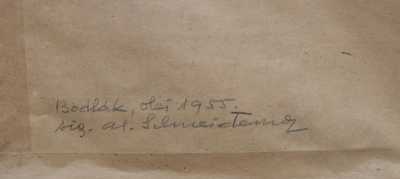 Bodlák, olej 1955.
sig. al. Schneiderová